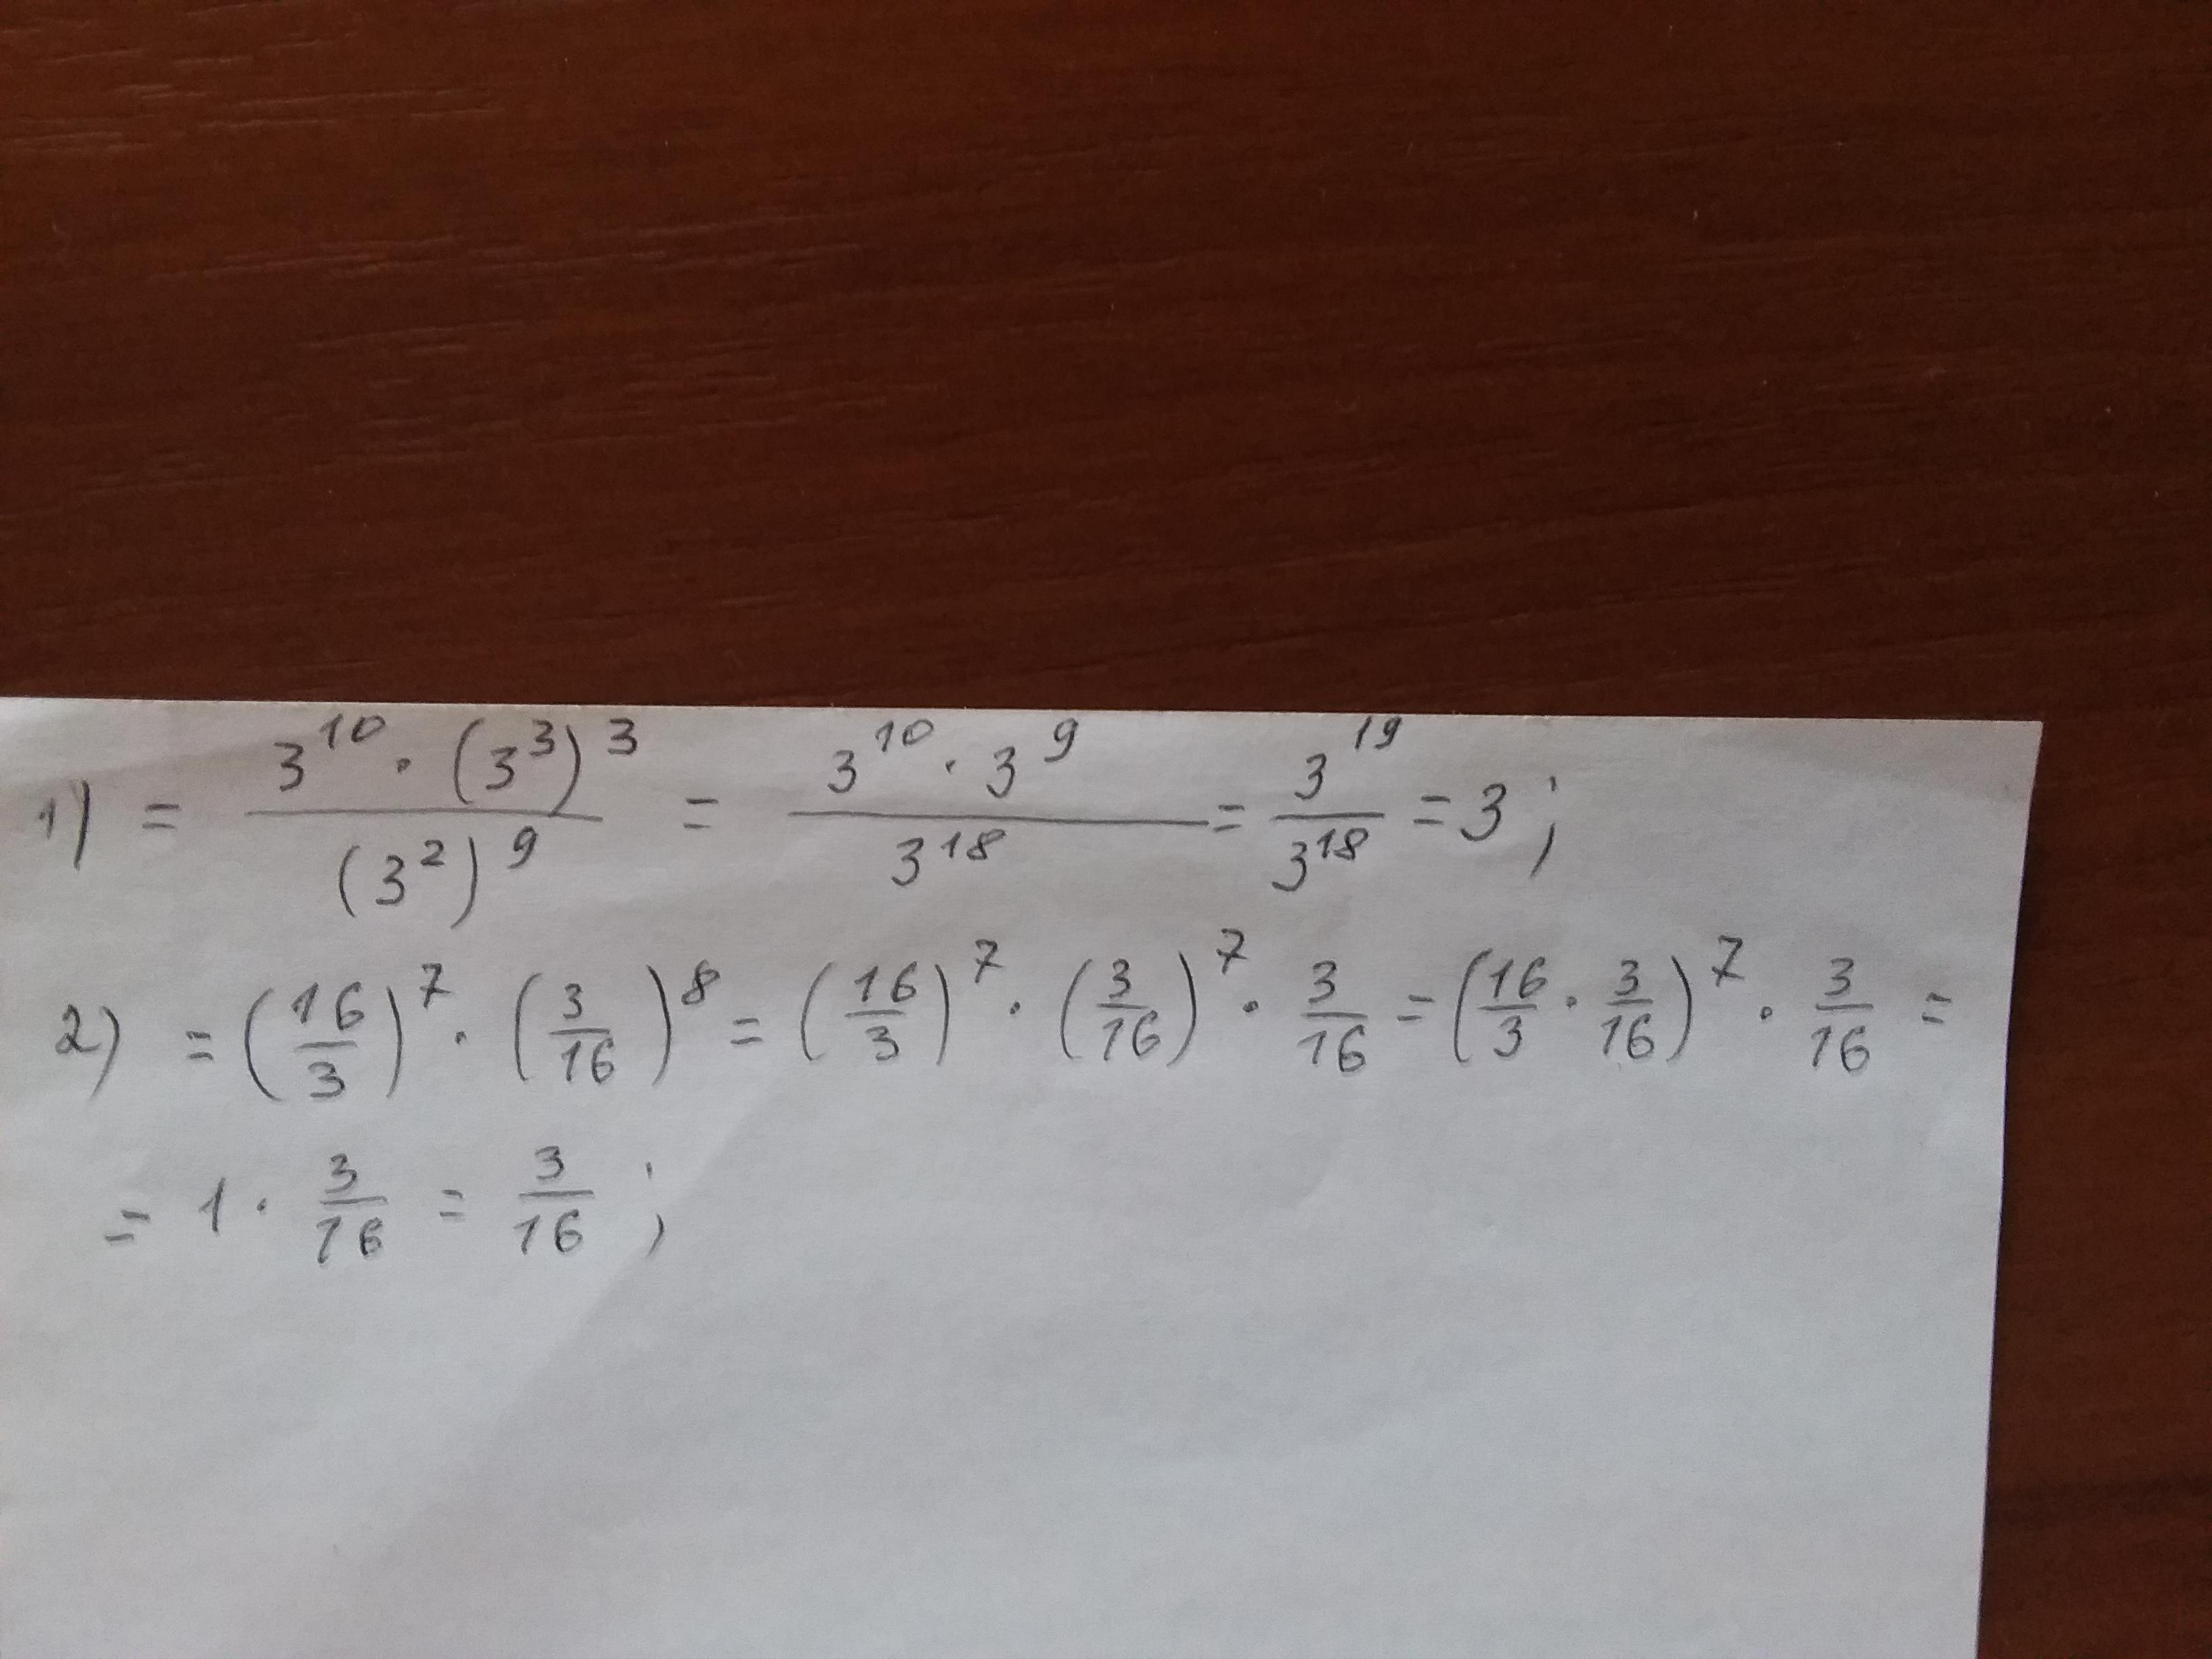 1) = \frac{3^{10} \cdot (3^3)^3}{(3^2)^9} = \frac{3^{10} \cdot 3^9}{3^{18}} = \frac{3^{19}}{3^{18}} = 3;
2) = (\frac{16}{3})^7 \cdot (\frac{3}{16})^8 = (\frac{16}{3})^7 \cdot (\frac{3}{16})^7 \cdot \frac{3}{16} = (\frac{16}{3} \cdot \frac{3}{16})^7 \cdot \frac{3}{16} =
= 1 \cdot \frac{3}{16} = \frac{3}{16};